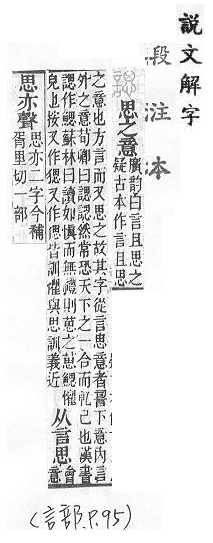 說文解字
段注本
思之意
廣韵曰言且思之
疑古本作言且思
之意也方言而又思之故其字從言思意者下意內言
外之意荀卿曰諰諰然常恐天下之一合而軋己也漢書
諰作鰓蘇林曰讀如慎而無禮則葸之葸鰓懼
皃也按又作又作偲皆訓懼與思訓義近
从言思
會
意
思亦聲
思亦二字今補
胥里切一部
(言部.P.95)